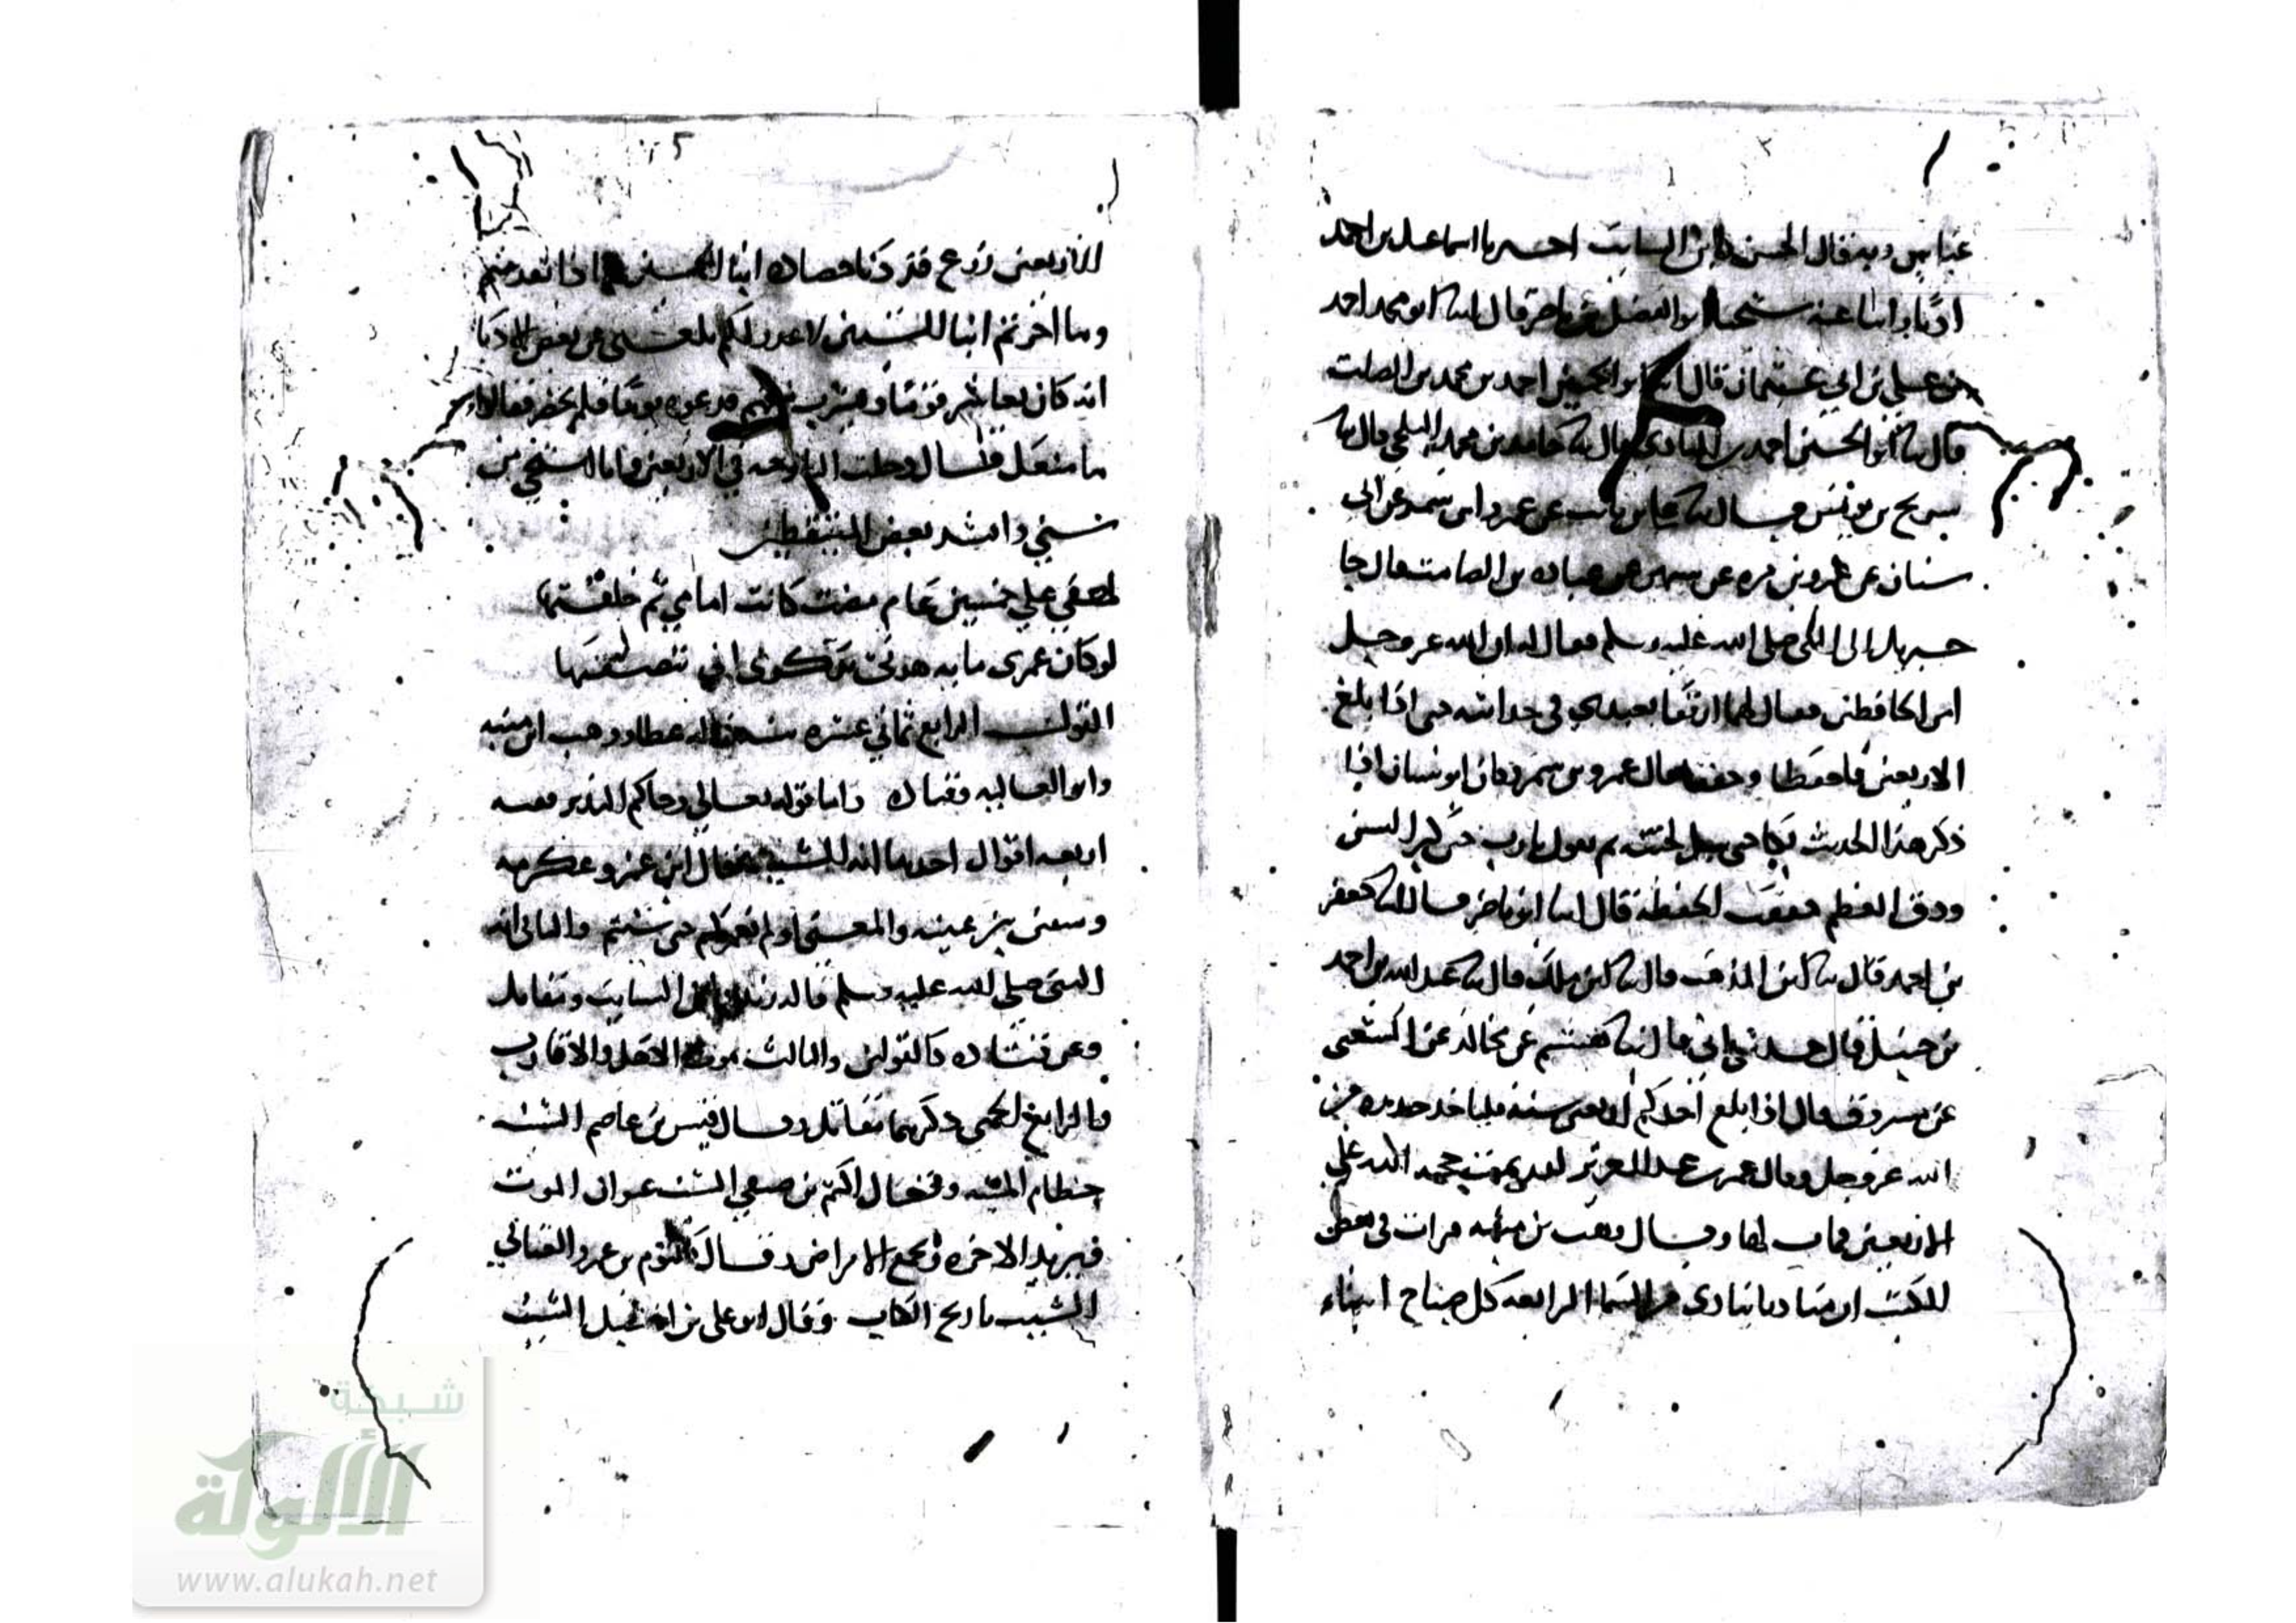 عباس وبه قال الحسن وابن السايب اخبرنا اسماعيل بن احمد
اذنا وانبا عنه شيخنا ابو الفضل بن ناصر قال ابنا ابو محمد احمد
بن علي بن ابي عثمان قال ابنا ابو الحسين احمد بن محمد بن الصلت
قال نا ابو الحسين احمد بن المنادي قال نا حامد بن محمد البلخي قال نا
سريج بن يونس قال نا علي بن ثابت عن عمرو ابن شمر عن ابي
سنان عن عمرو بن مره عن عن عباده بن الصامت قال جا
جبريل الى النبي صلى الله عليه وسلم فقال له ان الله عز وجل
امر الحافظين فقال لهما ارفقا بعبدي في حداثته حتى اذا بلغ
الاربعين فاحفظا وحققا قال عمرو بن شمر وكان ابو سنان اذا
ذكر هذا الحديث بكا حتى لحيته ثم يقول يا رب حين كبر السن
ودق العظم وقعت الحفظه قال ابنا ابن ناصر قال ابنا جعفر
بن احمد قال نا ابن المذهب قال نا ابن ملك قال نا عبد الله بن احمد
بن حنبل قال حدثني ابي قال نا هشيم عن مجالد عن الشعبي
عن مسروق قال اذا بلغ احدكم اربعين سنه فلياخذ حذره من
الله عز وجل وقال عمر بن عبد العزيز لقد تمت حجه الله على
الاربعين فمات لها وقال وهب بن منبه قرات في بعض
الكتب ان مناديا ينادي من السما الرابعه كل صباح ابناء
الاربعين زرع قد دنا حصاده ابنا الخمسين ماذا قدمتم
وما اخرتم ابنا الستين لا عذر لكم بلغني عن بعض الادبا
انه كان يعاشر قوما ويشرب معهم فدعوه يوما فلم يحضر فقالوا
ما منعك قال دخلت البارحه في الاربعين وانا استحي من
سني وانشد بعض المتيقظين
لهفي على خمسين عام مضت كانت امامي ثم خلفتها
لو كان عمري مايه هدني تذكري اني تنصفتها
القول الرابع ثماني عشره سنه قاله عطا ووهب ابن منبه
وابو العاليه وقتاده واما قوله تعالى وجاكم النذير ففيه
اربعه اقوال احدها انه الشيب قال ابن عمر وعكرمه
وسفين بن عيينه والمعنى او لم نعمركم حتى شبتم والثاني انه
النبي صلى الله عليه وسلم قاله زيد وابن السايب ومقاتل
وعن قتاده كالقولين والثالث موت الاهل والاقارب
والرابع الحمى ذكرهما مقاتل وقال قيس بن عاصم الشيب
خطام المنيه وقال اكثم بن صيفي الشيب عنوان الموت
بريد الاخره الامراض وقال كلثوم بن عمرو العتابي
الشيب تاريخ الكتاب وقال ابو علي بن الشيب
شبكة
الألوكة
www.alukah.net